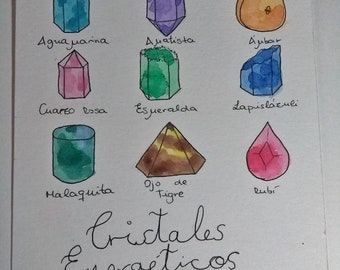 Aguamarina Amatista Ámbar
Cuarzo Rosa Esmeralda Lapislázuli
Malaquita Ojo de Tigre Rubí
Cristales
Energéticos